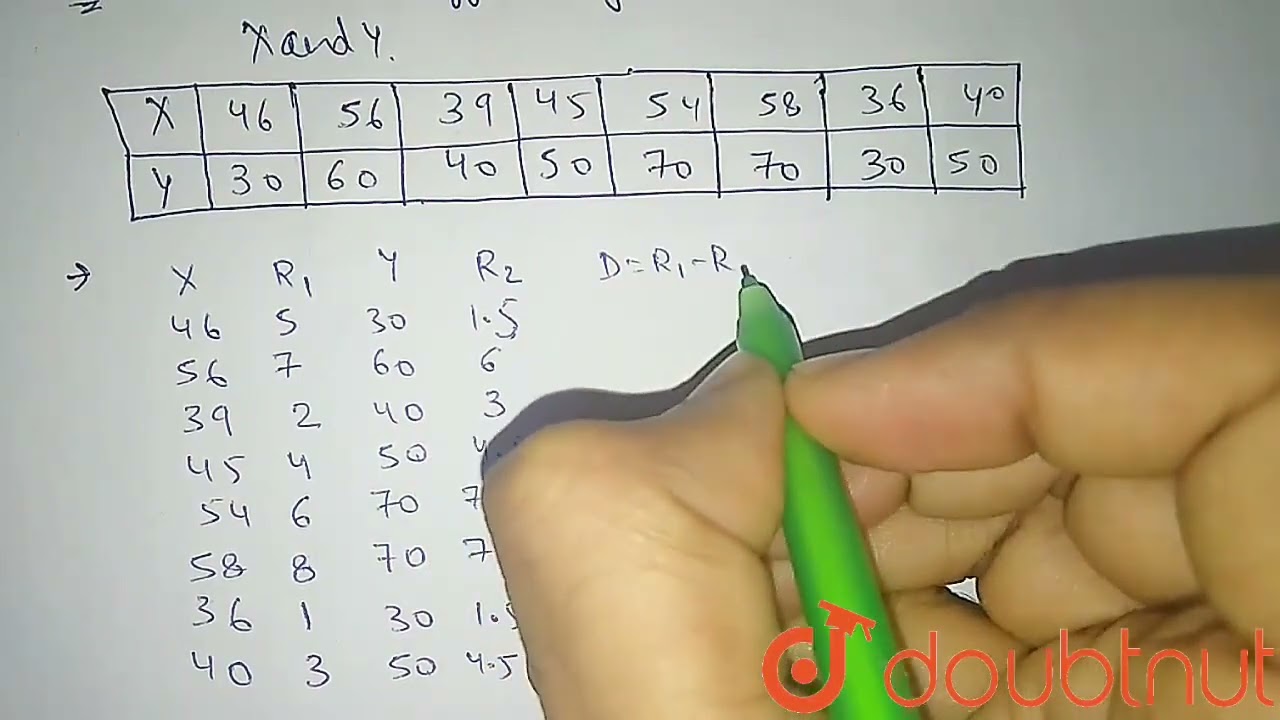 X and Y.
X 46 56 39 45 54 58 36 40
Y 30 60 40 50 70 70 30 50
→ X R₁ Y R₂ D = R₁ - R
46 5 30 1.5
56 7 60 6
39 2 40 3
45 4 50 4.
54 6 70 7
58 8 70 7
36 1 30 1.5
40 3 50 4.5
doubtnut